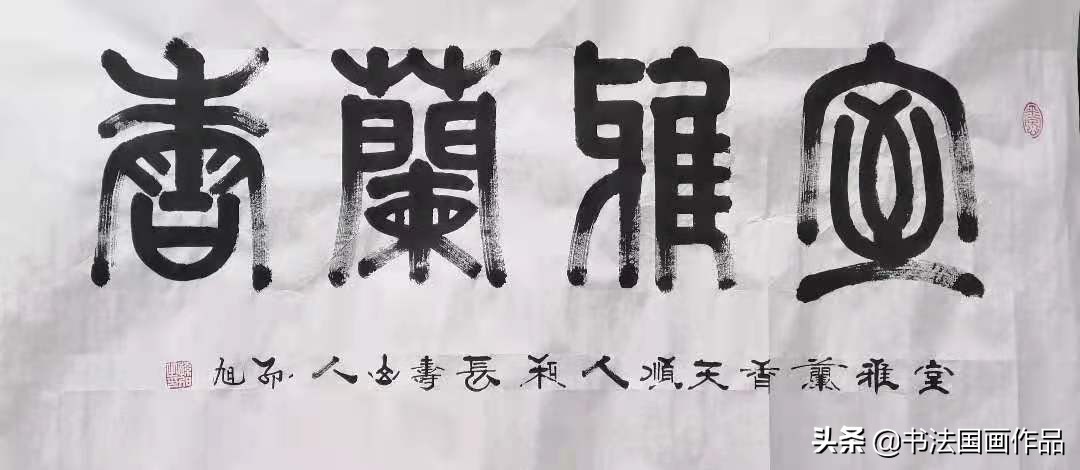 室雅蘭香
室雅蘭香天順人和長壽山人旭
头条 @书法国画作品